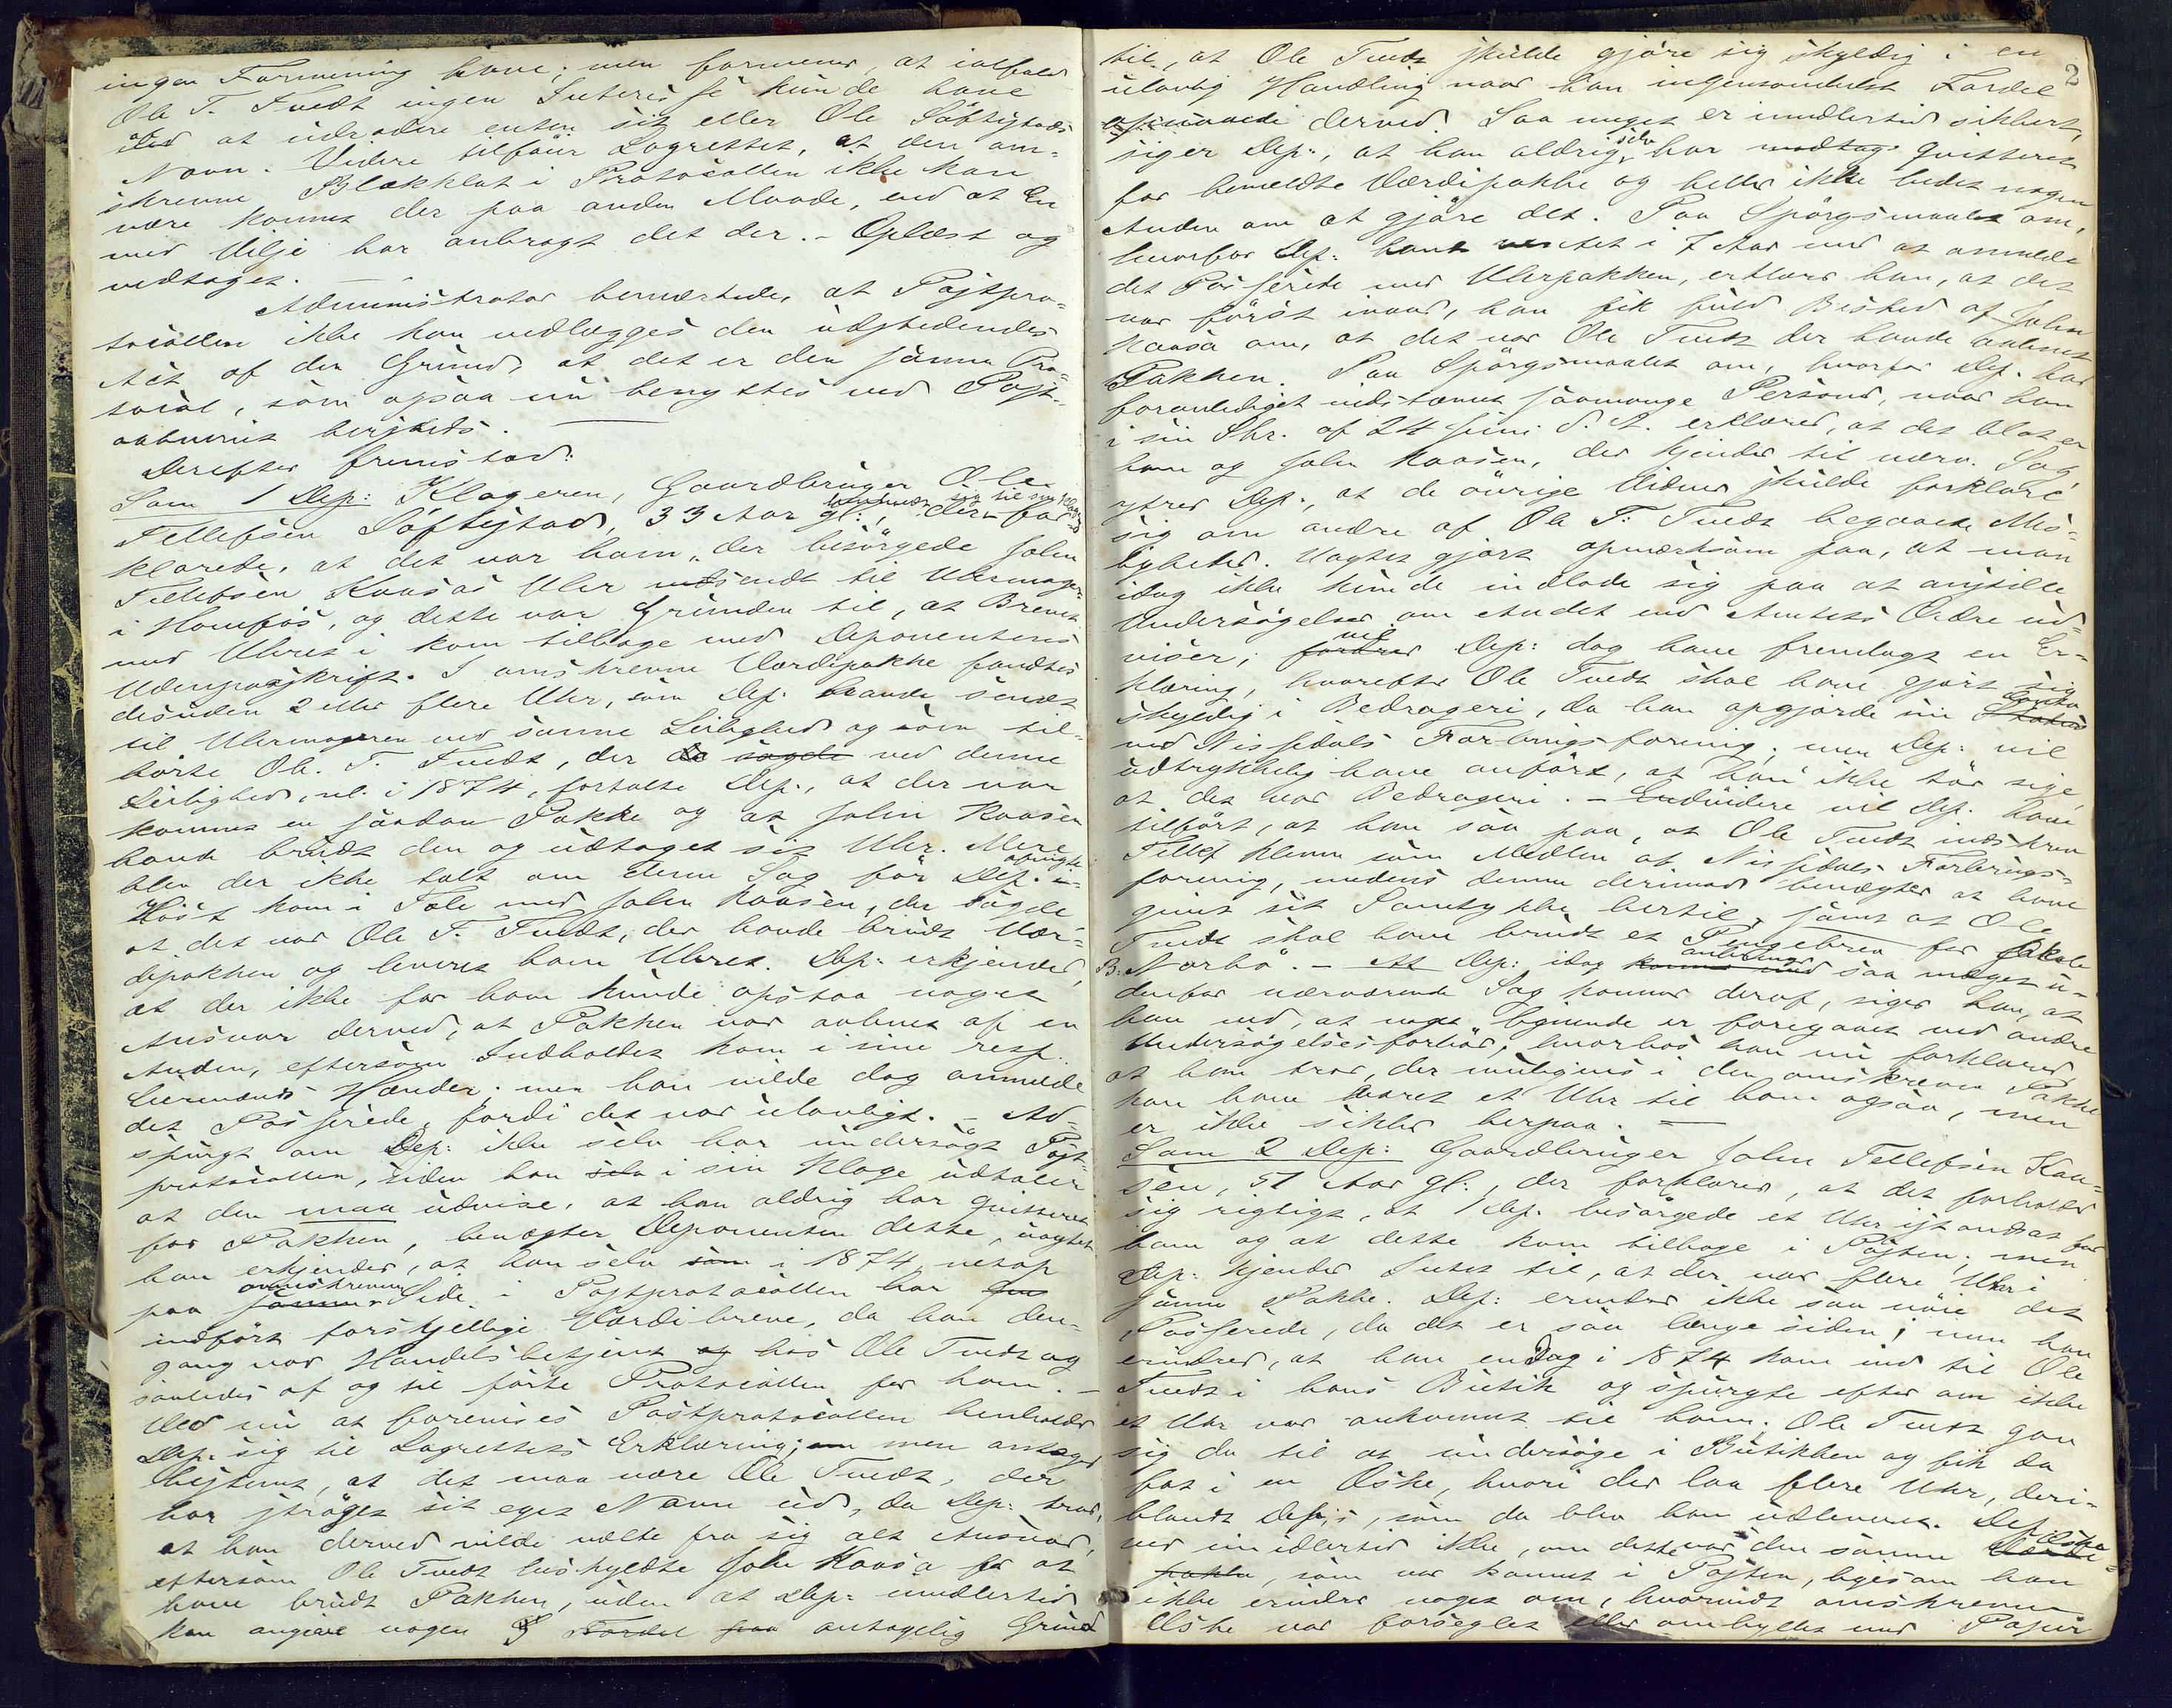 ingen Formening have; men formener, at ialfald
Ole T. Tvedt ingen Interesse kunde have
af at udradere enten sit eller Ole Söftestads
Navn. Videre tilföier Lagrettet, at den om-
skrevne Blækklat i Protocollen ikke kan
være kommet der paa anden Maade, end at En
med Vilje har anbragt det der. - Oplæst og
vedtaget. —
Administrator bemærkede, at Postpro-
tocollen ikke kan vedlægges den udstedendes
Act af den Grund, at det er den samme Pro-
tocol, som ogsaa nu benyttes ved Post-
aabneriet hersteds. —
Derefter fremstod:
Som 1 Dep: Klageren, Gaardbruger Ole
Tellefsen Söftestad, 33 Aar gl:, der for-
klarede, at det var ham, der besörgede John
Tellefsen Kaasas Uhr indsendt til Uhrmager
i Homfos, og dette var Grunden til, at Brevet
med Uhret i kom tilbage med Deponentens
Udenpaaskrift. I omskrevne Værdipakke fandtes
desuden 2 eller flere Uhr, som Dep: havde sendt
til Uhrmageren ved samme Leilighed og som til-
hörte Ole T. Tvedt, der da sagde ved denne
Leilighed, nl. i 1874, fortalte Dep., at der var
kommet en saadan Pakke og at John Kaasen
havde brudt den og udtaget sit Uhr. Mere
blev der ikke talt om denne Sag för Dep. afvigte
Höst kom i Tale med John Kaasen, der sagde
at det var Ole T. Tvedt, der havde brudt Vær-
dipakken og leveret ham Uhret. Dep: erkjender,
at der ikke for ham kunde opstaa noget
Ansvar derved, at Pakken var aabnet af en
Anden, eftersom Indholdet kom i sine resp.
Eiermænds Hænder; men han vilde dog anmelde
det Passerede, fordi det var ulovligt. - Ad-
spurgt om Dep: ikke selv har undersögt Post-
protocollen, siden han selv i sin Klage udtaler
at den maa udvise, at han aldrig har qvitteret
for Pakken, benægter Deponenten dette, uagtet
han erkjender, at han selv som i 1874 netop
paa samme omskrevne Side i Postprotocollen har
indfört forskjellige Værdibreve, da han den-
gang var Handelsbetjent og hos Ole Tvedt og
saaledes af og til förte Protocollen for ham. -
Ved nu at forevises Postprotocollen henholder
Dep. sig til Lagrettets Erklæring; men antager
bestemt, at det maa være Ole Tvedt, der
har ströget sit eget Navn ud, da Dep: tror,
at han derved vilde vælte fra sig alt Ansvar,
eftersom Ole Tvedt beskyldte John Kaasa for at
have brudt Pakken, uden at Dep: imidlertid
kan angive nogen Fordel paa antagelig Grund
2
til, at Ole Tvedt skulde gjöre sig skyldig i en
ulovlig Handling naar han ingensomhelst Fordel
opnaaede derved. Saa meget er imidlertid sikkert,
siger Dep:, at han aldrig selv har modtag qvitteret
for bemeldte Værdipakke og heller ikke bedet nogen
Anden om at gjöre det. Paa Spörgsmaalet om,
hvorfor Dep: havde ventet i 7 Aar med at anmelde
det Passerede med Uhrpakken, erklærer han, at det
var först ivaar, han fik fuld Besked af John
Kaasa om, at det var Ole Tvedt der havde aabnet
Pakken. Paa Spörgsmaalet om, hvorfor Dep. har
foranlediget indstævnet saamange Personer, naar han
i sin Skr. af 24 Juni d. A. erklærer, at det blot er
ham og John Kaasen, der kjender til nærv. Sag
ytrer Dep:, at de övrige Vidner skulde forklare
sig om andre af Ole T: Tvedt begaaede Mis-
ligheder. Uagtet gjort opmærksom paa, at man
idag ikke kunde indlade sig paa at anstille
Undersögelser om Andet end Amtets Ordre ud-
viser, fordrer vil Dep: dog have fremlagt en Er-
klæring, hvorefter Ole Tvedt skal have gjort sig
skyldig i Bedrageri, da han opgjorde sin Conto
med Nissedals Forbrugsforening; men Dep: vil
udtrykkelig have anfört, at han ikke tör sige,
at det var Bedrageri. - Endvidere vil Dep. have
tilfört, at han saa paa, at Ole Tvedt indskrev
Tellef Klemm som Medlem af Nissedals Forbrugs-
forening, medens denne derimod benægter at have
givet sit Samtykke hertil, samt at Ole
Tvedt skal have brudt et Pengebrev for Jakob
B. Narbö. - At Dep: idag anbringer saa meget u-
denfor nærværende Sag kommer deraf, siger han, at
han ved, at noget lignende er foregaaet ved andre
Undersögelsesforhör, hvorhos han nu forklarer,
at han tror, der muligens i den omskrevne Pakke
kan have været et Uhr til ham ogsaa, men
er ikke sikker herpaa. —
Som 2 Dep: Gaardbruger John Tellefsen Kaa-
sen, 51 Aar gl:, der forklarer, at det forholder
sig rigtigt, at 1 Dep. besörgede et Uhr istandsat for
ham og at dette kom tilbage i Posten; men
Dep: kjender Intet til, at der var flere Uhr i
samme Pakke. Dep: erindrer ikke saa nöie det
Passerede, da det er saa længe siden; men han
erindrer, at han en Dag i 1874 kom ind til Ole
Tvedt i hans Butik og spurgte efter om ikke
et Uhr var ankommet til ham. Ole Tvedt gav
sig da til at undersöge i Butikken og fik da
fat i en Æske, hvori der laa flere Uhr, deri-
blandt Dep:s, som da blev ham udleveret. Dep.
ved imidlertid ikke, om dette var den samme Æske
pakke, som var kommet i Posten, ligesom han
ikke erindrer noget om, hvorvidt omskrevne
Æske var forseglet eller omhyllet med Papir